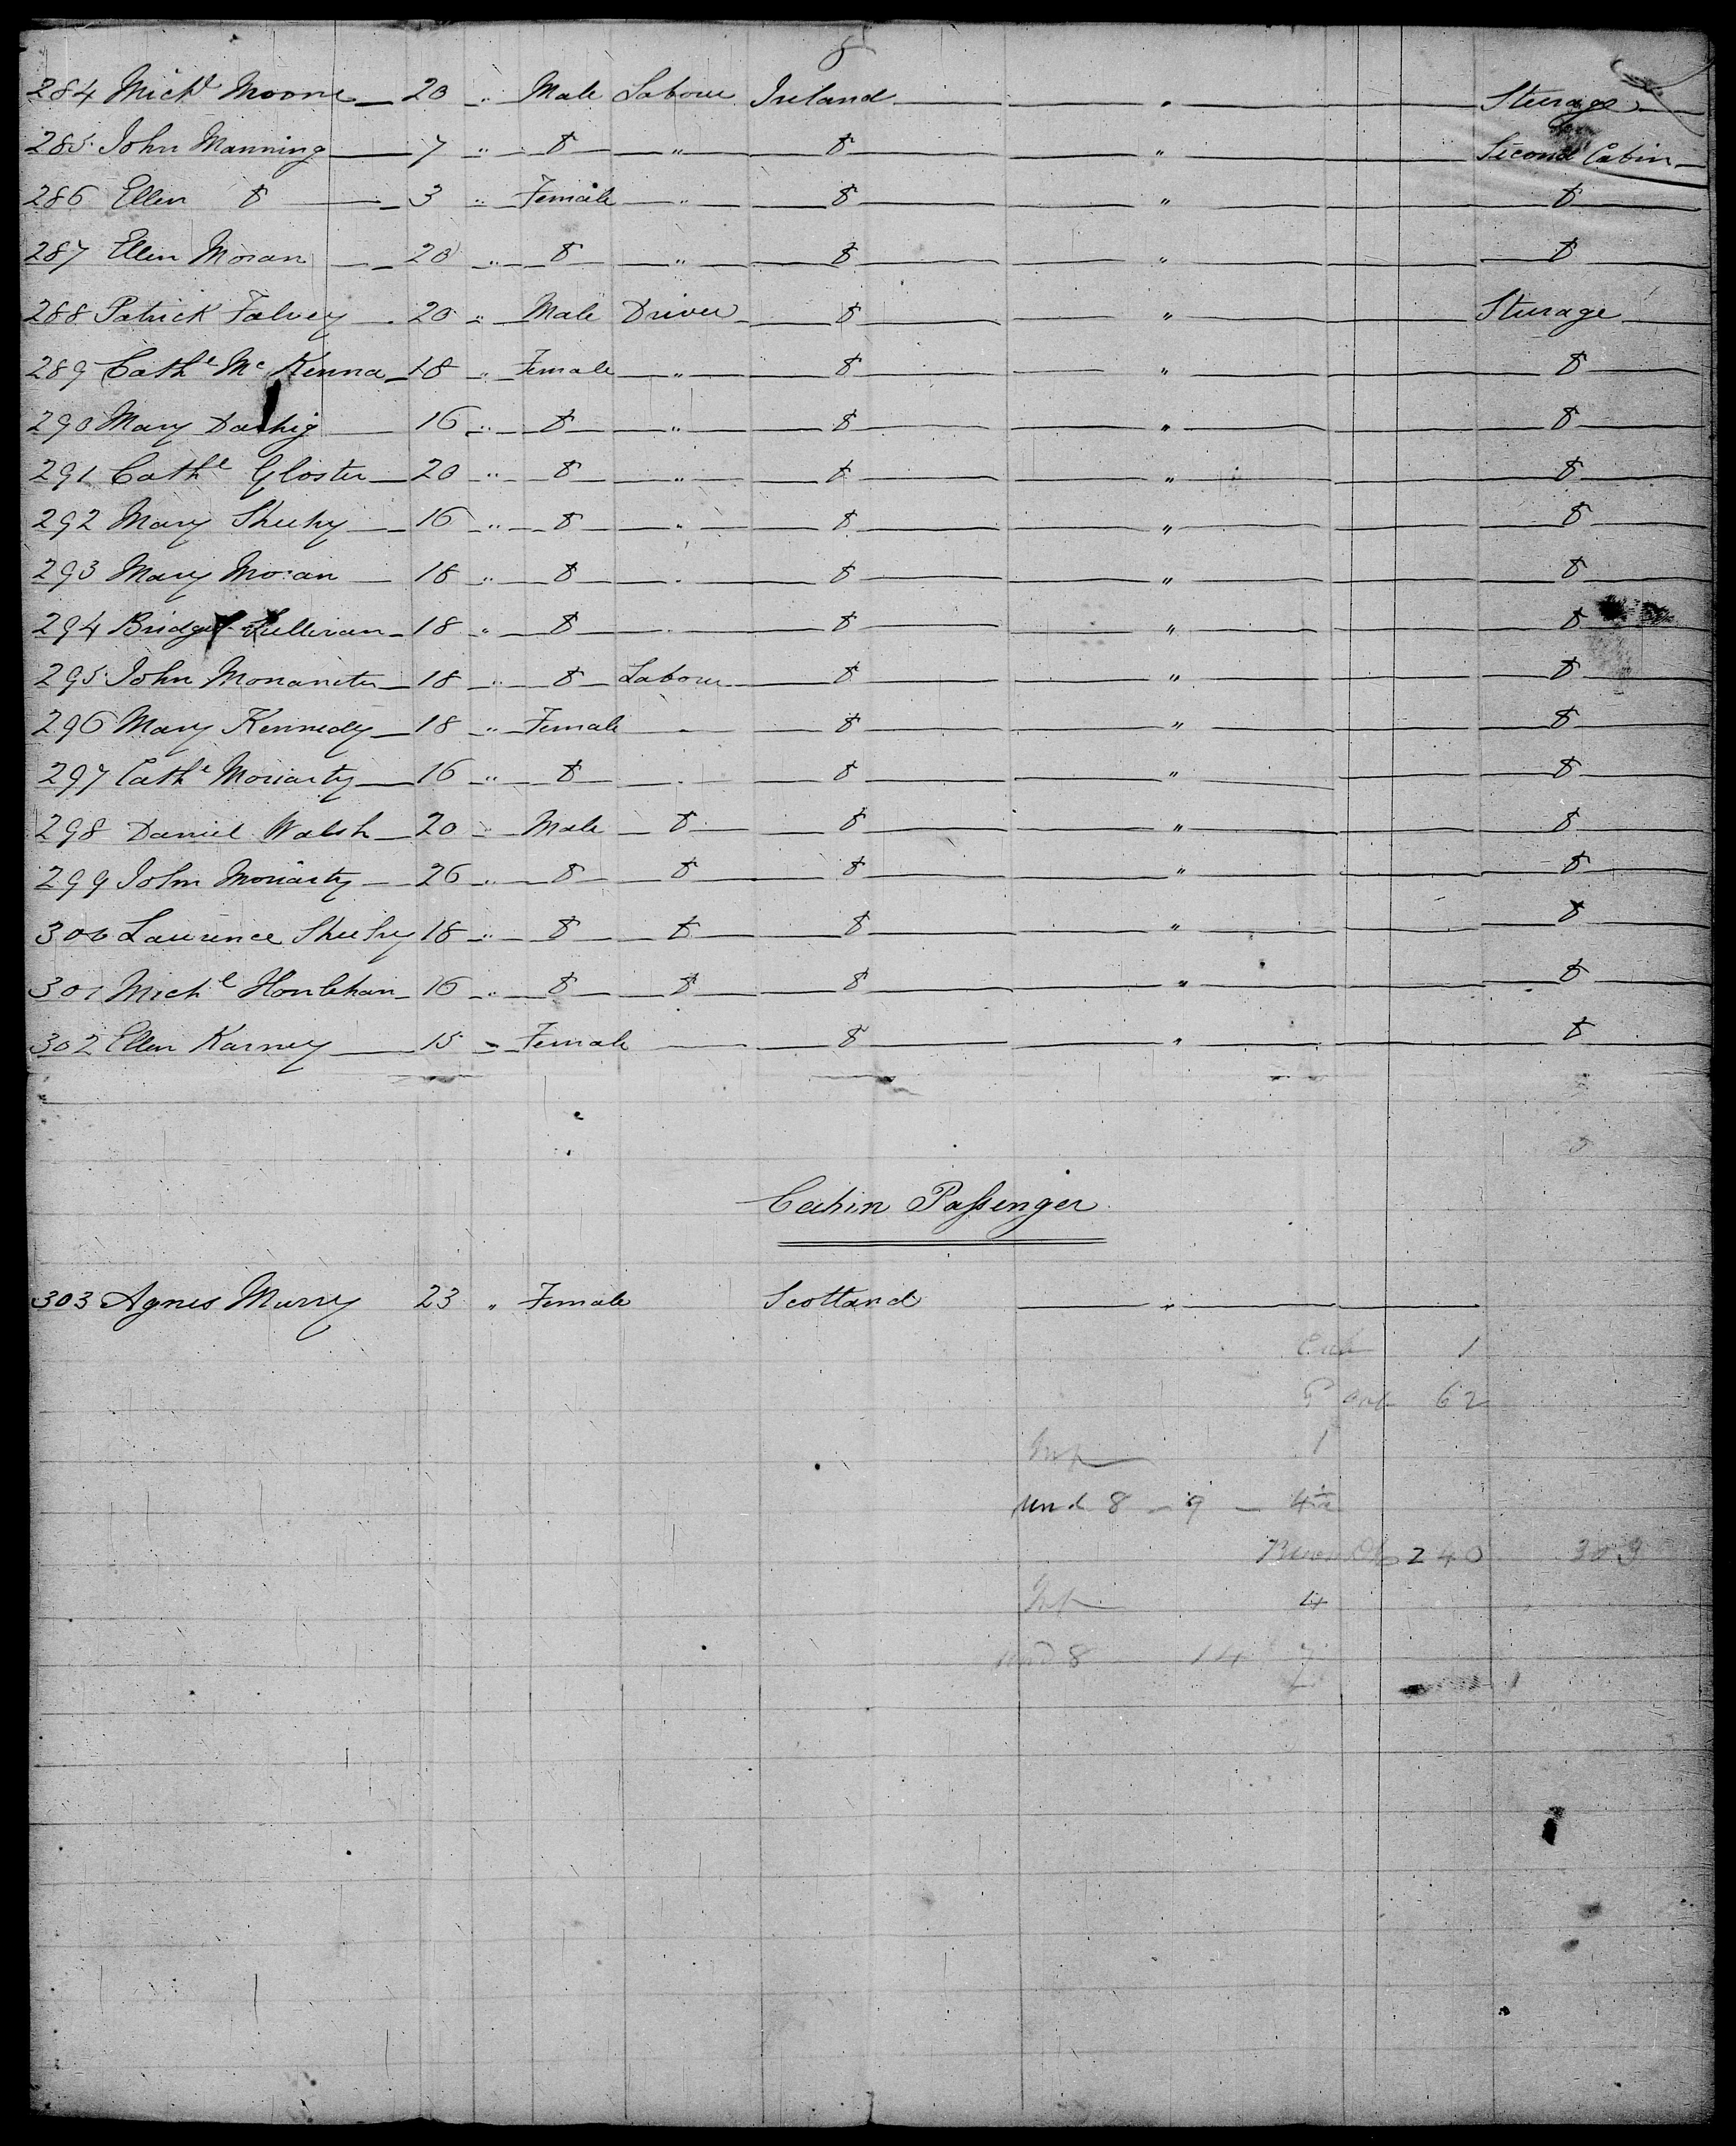 284 Mich.l Moore 20 " Male Labour Ireland " Sturage
285 John Manning 7 " Do " Do " Second Cabin
286 Ellen Do 3 " Female " Do " Do
287 Ellen Moran 20 " Do " Do " Do
288 Patrick Falvey 20 " Male Driver Do " Sturage
289 Cath.e McKenna 18 " Female " Do " Do
290 Mary 16 " Do " Do " Do
291 Cath.e Gloster 20 " Do " Do " Do
292 Mary Sheehy 16 " Do " Do " Do
293 Mary Moran 18 " Do " Do " Do
294 Bridget Sullivan 18 " Do " Do " Do
295 John 18 " Do Labour Do " Do
296 Mary Kennedy 18 " Female " Do " Do
297 Cath.e Moriarty 16 " Do " Do " Do
298 Daniel Walsh 20 " Male Do Do " Do
299 John Moriarty 26 " Do Do Do " Do
300 Laurence Sheehy 18 " Do Do Do " Do
301 Mich.l Houlehan 16 " Do Do Do " Do
302 Ellen Karney 15 " Female Do " Do
Cabin Passenger
303 Agnes Murry 23 " Female Scotland "
1
62
Inf 1
und 8 - 9 - 4½
240 303
Inf 4
und 8 14 7